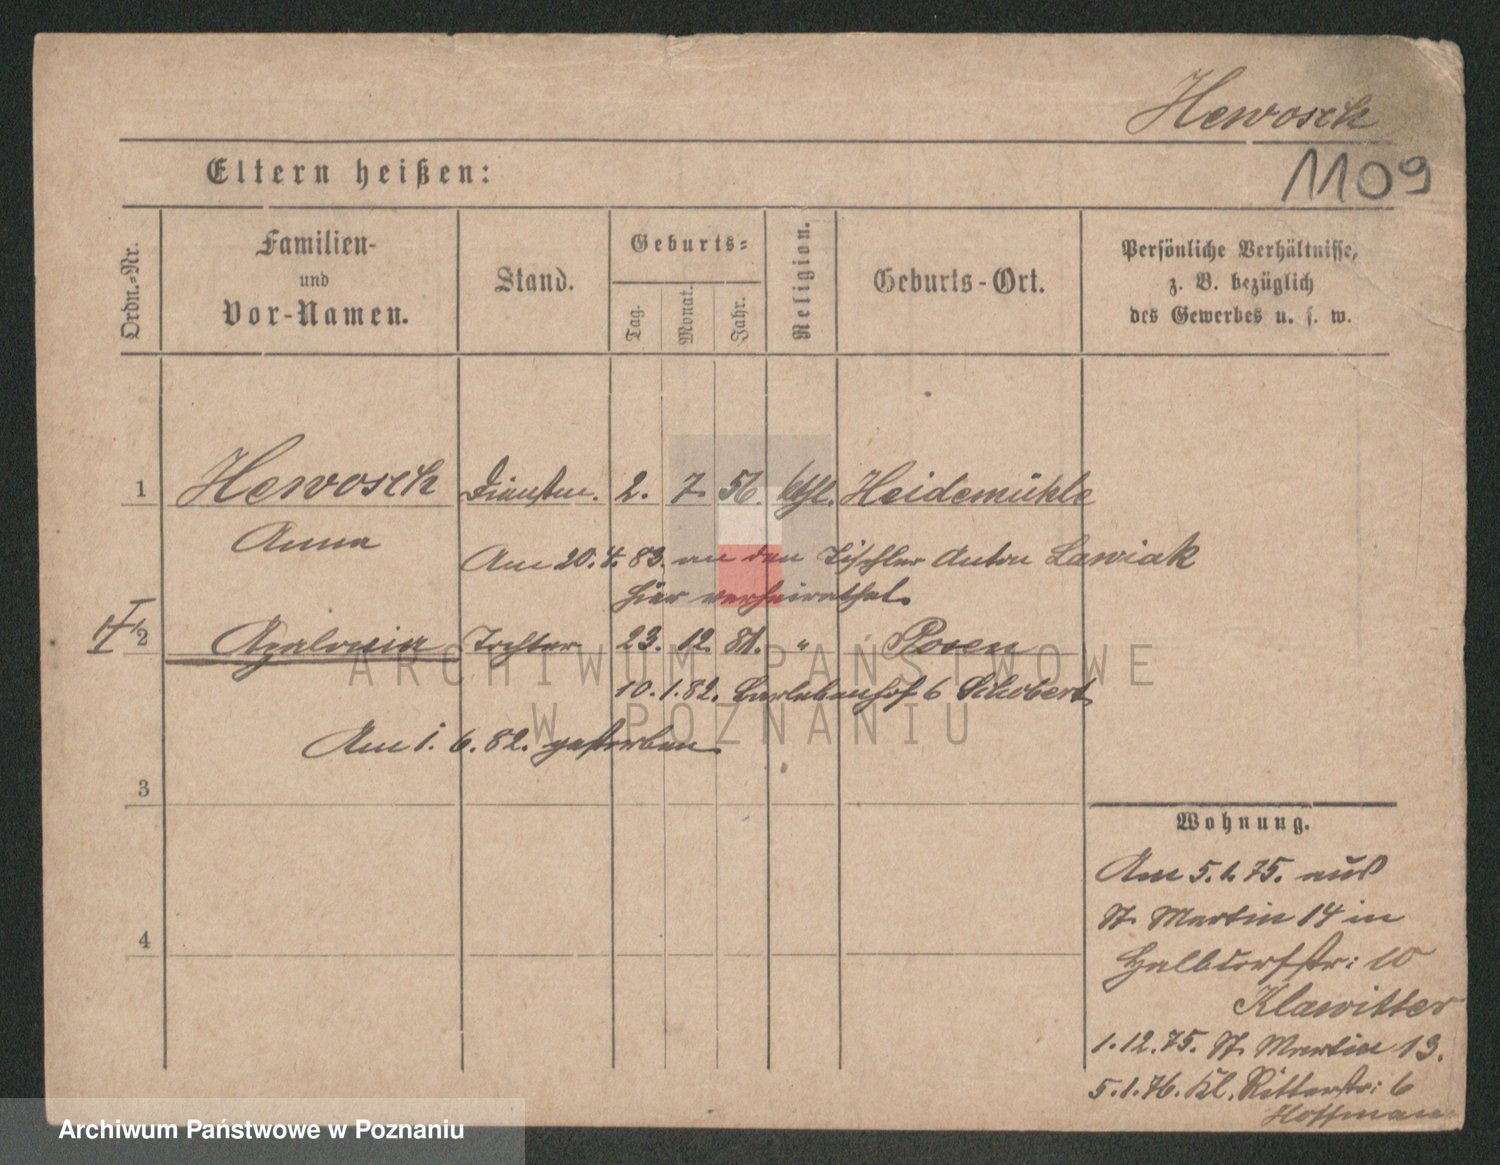 Hewosch
1109
Eltern heißen:
Ordn.-Nr.
Familien-
und
Vor-Namen.
Stand.
Geburts-
Tag.
Monat.
Jahr.
Religion.
Geburts-Ort.
Persönliche Verhältnisse,
z. B. bezüglich
des Gewerbes u. s. w.
1 Hewosch Dienstm. 2. 7. 56. kthl. Heidemühle
Anna
Am 20. 4. 83. an den Tischler Anton Lawiak
hier verheirathet.
2 Apalonia Tochter 23. 12. 81. " Posen
10. 1. 82. 6 Schobert
Am 1. 6. 82. gestorben.
3
4
Wohnung.
Am 5. 1. 75. aus
St. Martin 14 in
Halbdorfstr: 10
Klawitter
1. 12. 75. St. Martin 13.
5. 1. 76. Kl. Ritterstr: 6
Hoffman
ARCHIWUM PAŃSTWOWE
W POZNANIU
Archiwum Państwowe w Poznaniu